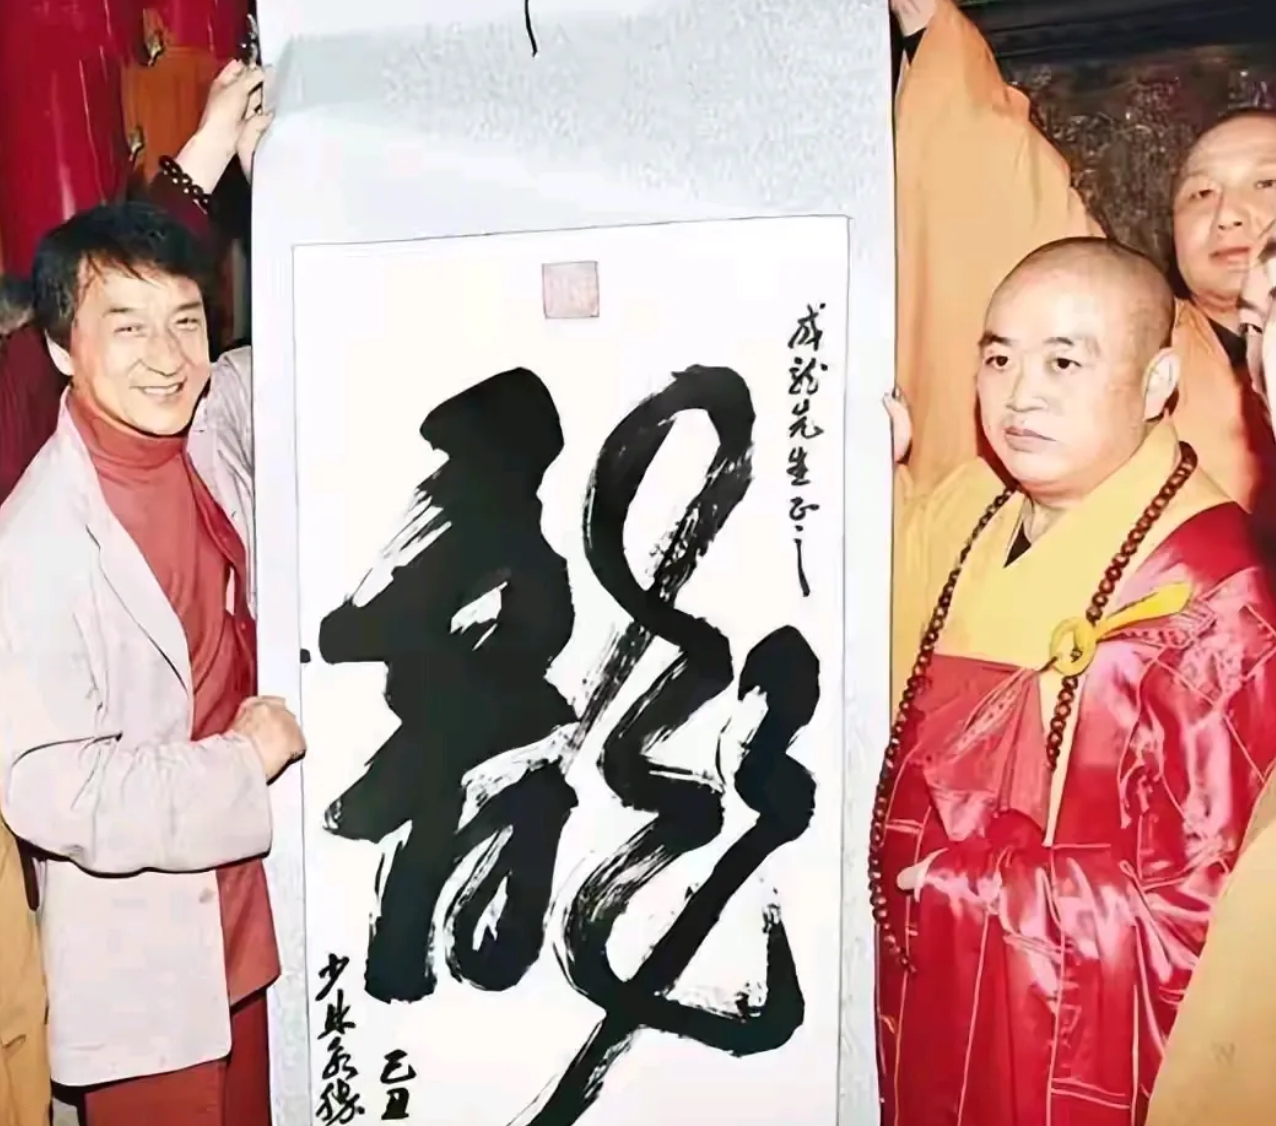 成龙先生正之
龍
己丑
少林永